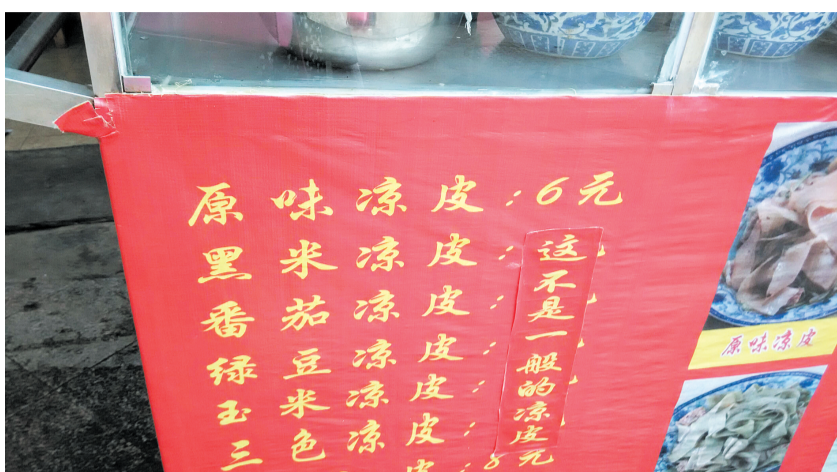 原味凉皮：6元
黑米凉皮：
番茄凉皮：
绿豆凉皮：
玉米凉皮：
三色凉皮：
皮：8元
这不是一般的凉皮
原味凉皮